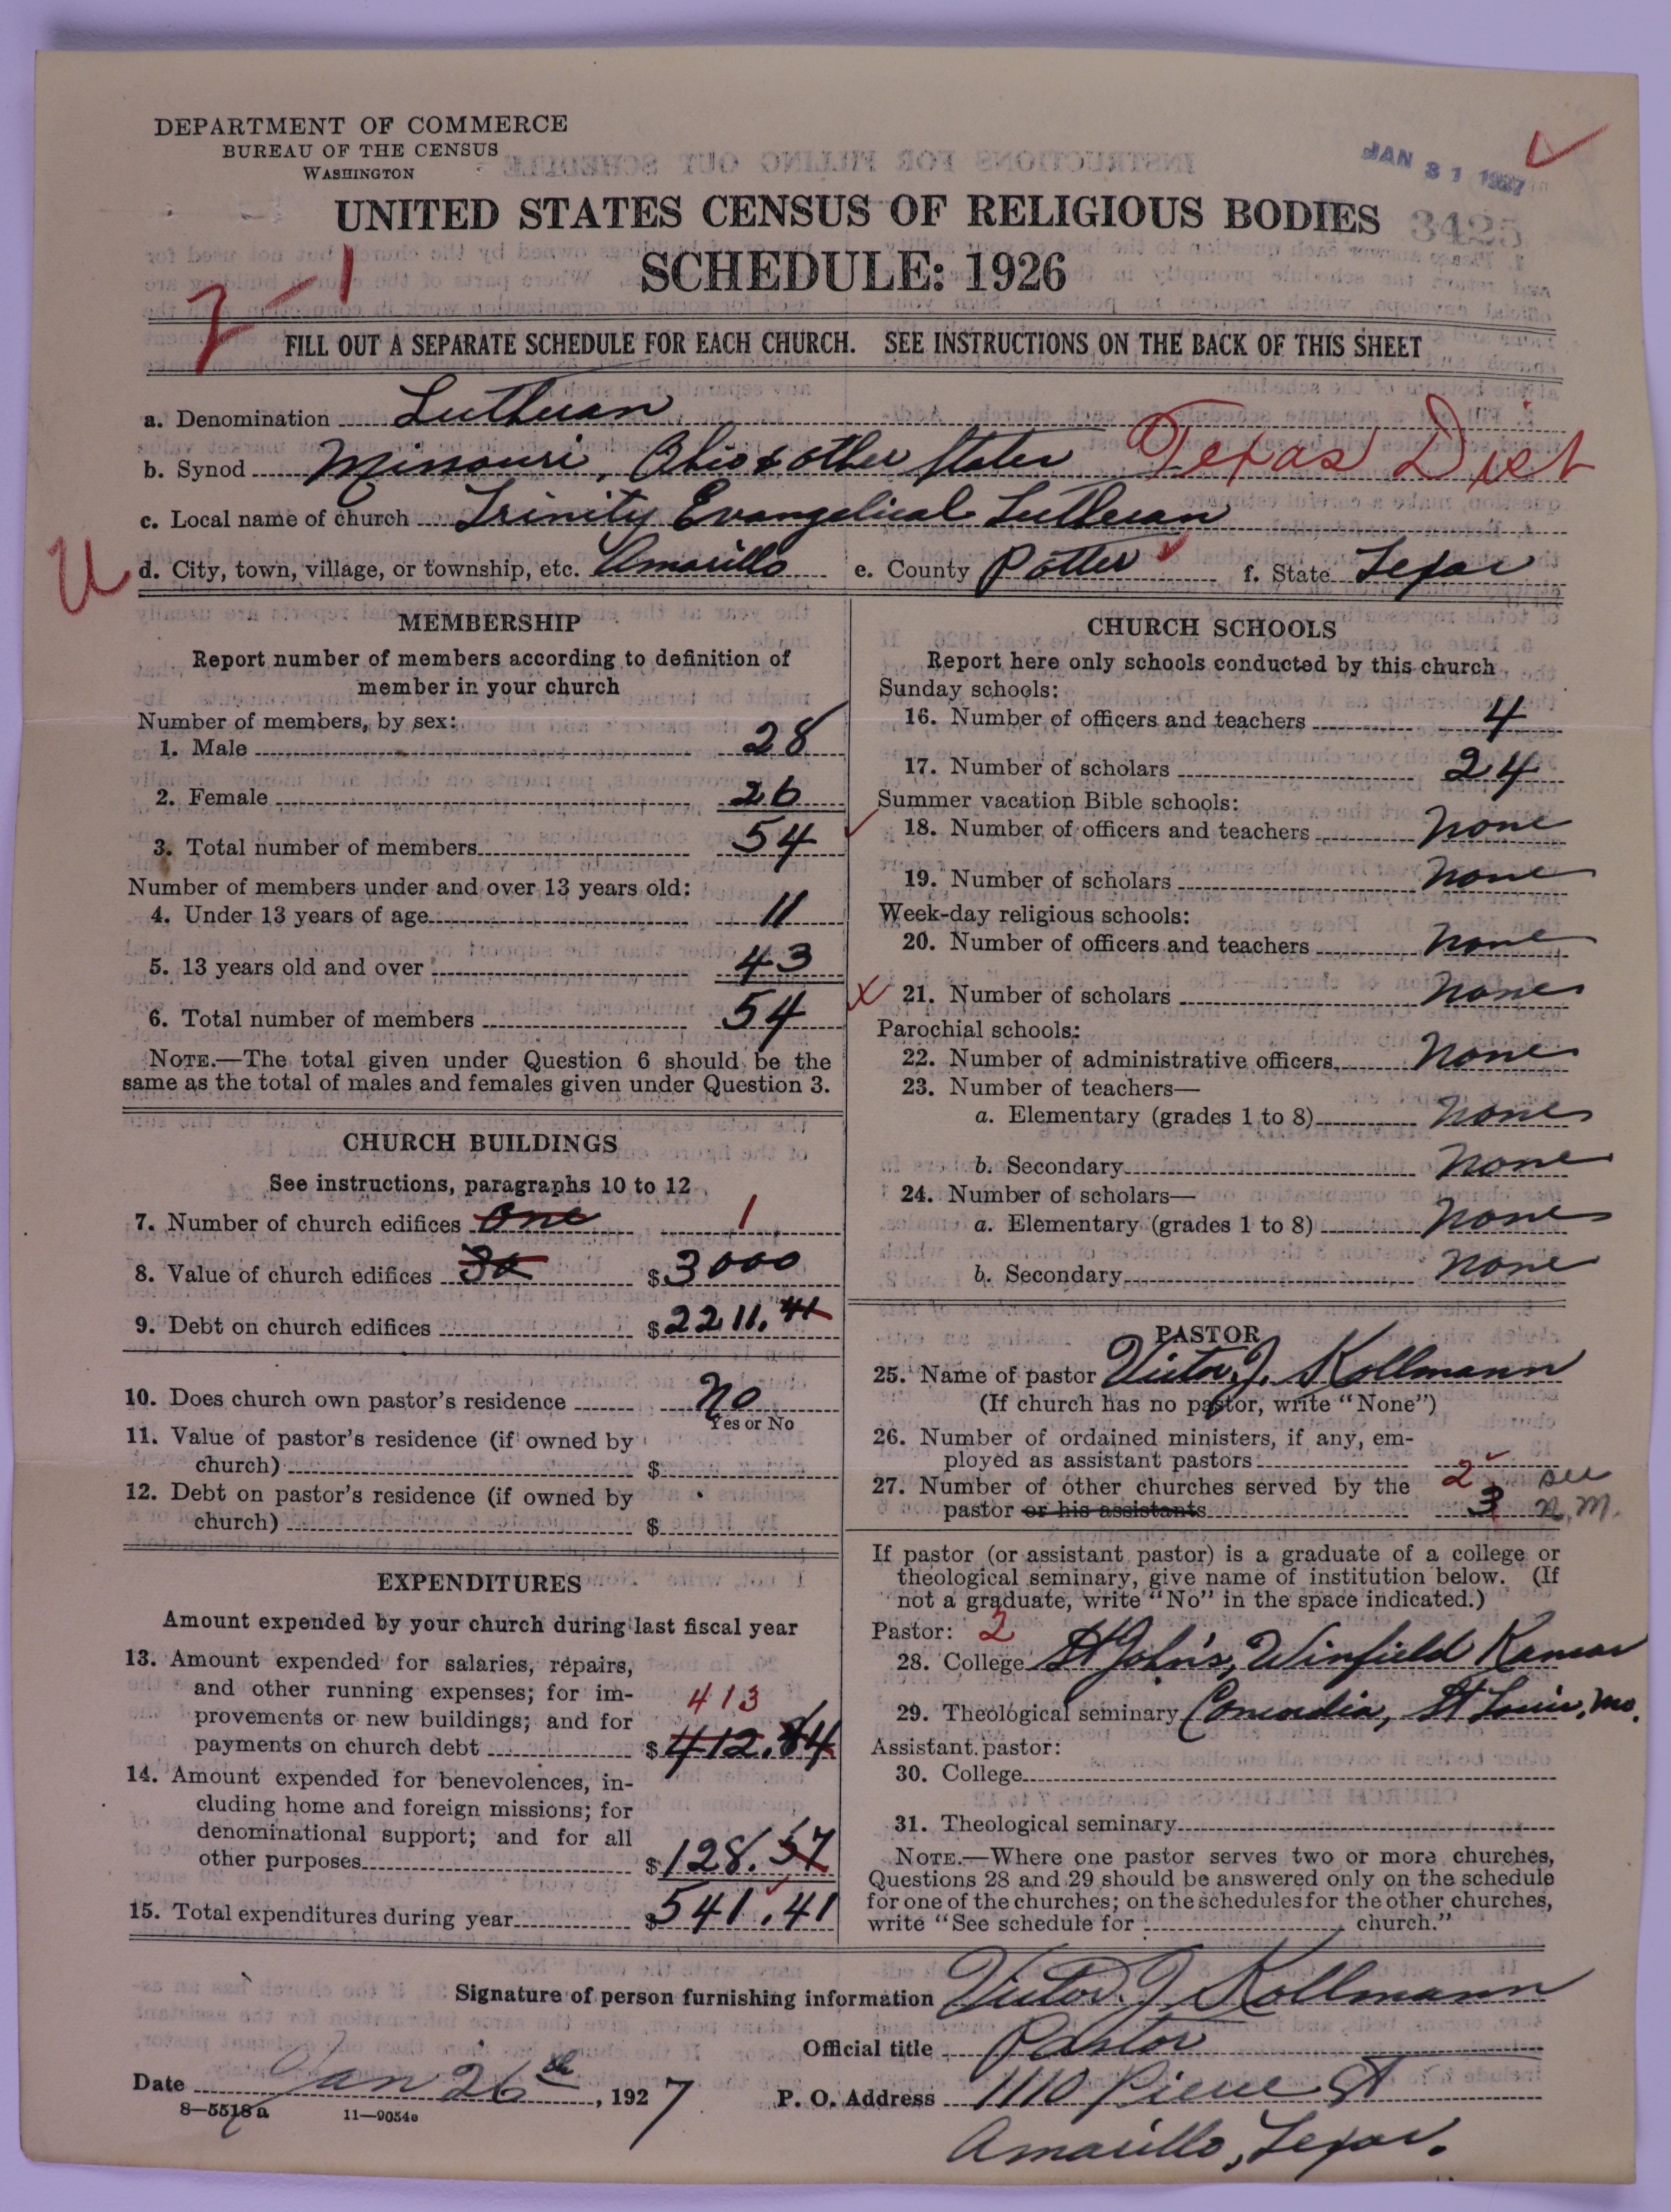 DEPARTMENT OF COMMERCE
BUREAU OF THE CENSUS
WASHINGTON
JAN 31 1927
UNITED STATES CENSUS OF RELIGIOUS BODIES
3425
SCHEDULE: 1926
7-1
FILL OUT A SEPARATE SCHEDULE FOR EACH CHURCH. SEE INSTRUCTIONS ON THE BACK OF THIS SHEET
a. Denomination Lutheran
b. Synod Missouri, Ohio & other States Texas Dist
c. Local name of church Trinity Evangelical Lutheran
U d. City, town, village, or township, etc. Amarillo e. County Potter f. State Texas
MEMBERSHIP
Report number of members according to definition of
member in your church
Number of members, by sex:
1. Male 28
2. Female 26
3. Total number of members 54
Number of members under and over 13 years old:
4. Under 13 years of age 11
5. 13 years old and over 43
6. Total number of members 54
NOTE.—The total given under Question 6 should be the
same as the total of males and females given under Question 3.
CHURCH BUILDINGS
See instructions, paragraphs 10 to 12
7. Number of church edifices One 1
8. Value of church edifices 30 $3000
9. Debt on church edifices $2211.41
10. Does church own pastor's residence No
Yes or No
11. Value of pastor's residence (if owned by
church) $
12. Debt on pastor's residence (if owned by
church) $
EXPENDITURES
Amount expended by your church during last fiscal year
13. Amount expended for salaries, repairs,
and other running expenses; for im-
413
provements or new buildings; and for
payments on church debt $412.84
14. Amount expended for benevolences, in-
cluding home and foreign missions; for
denominational support; and for all
other purposes $128.57
15. Total expenditures during year $541.41
CHURCH SCHOOLS
Report here only schools conducted by this church
Sunday schools:
16. Number of officers and teachers 4
17. Number of scholars 24
Summer vacation Bible schools:
18. Number of officers and teachers none
19. Number of scholars none
Week-day religious schools:
20. Number of officers and teachers none
21. Number of scholars none
Parochial schools:
22. Number of administrative officers none
23. Number of teachers—
a. Elementary (grades 1 to 8) none
b. Secondary none
24. Number of scholars—
a. Elementary (grades 1 to 8) none
b. Secondary none
PASTOR
25. Name of pastor Victor. J. Kollmann
(If church has no pastor, write "None")
26. Number of ordained ministers, if any, em-
ployed as assistant pastors
27. Number of other churches served by the 2 see
pastor or his assistants 3 N.M.
If pastor (or assistant pastor) is a graduate of a college or
theological seminary, give name of institution below. (If
not a graduate, write "No" in the space indicated.)
Pastor: 2
28. College St John's, Winfield Kansas
29. Theological seminary Concordia, St Louis, Mo.
Assistant pastor:
30. College
31. Theological seminary
NOTE.—Where one pastor serves two or more churches,
Questions 28 and 29 should be answered only on the schedule
for one of the churches; on the schedules for the other churches,
write "See schedule for church."
Signature of person furnishing information Victor. J. Kollmann
Official title Pastor
Date Jan 26th, 1927 P. O. Address 1110 Pierce St
8—5518a 11—9054o
Amarillo, Texas.